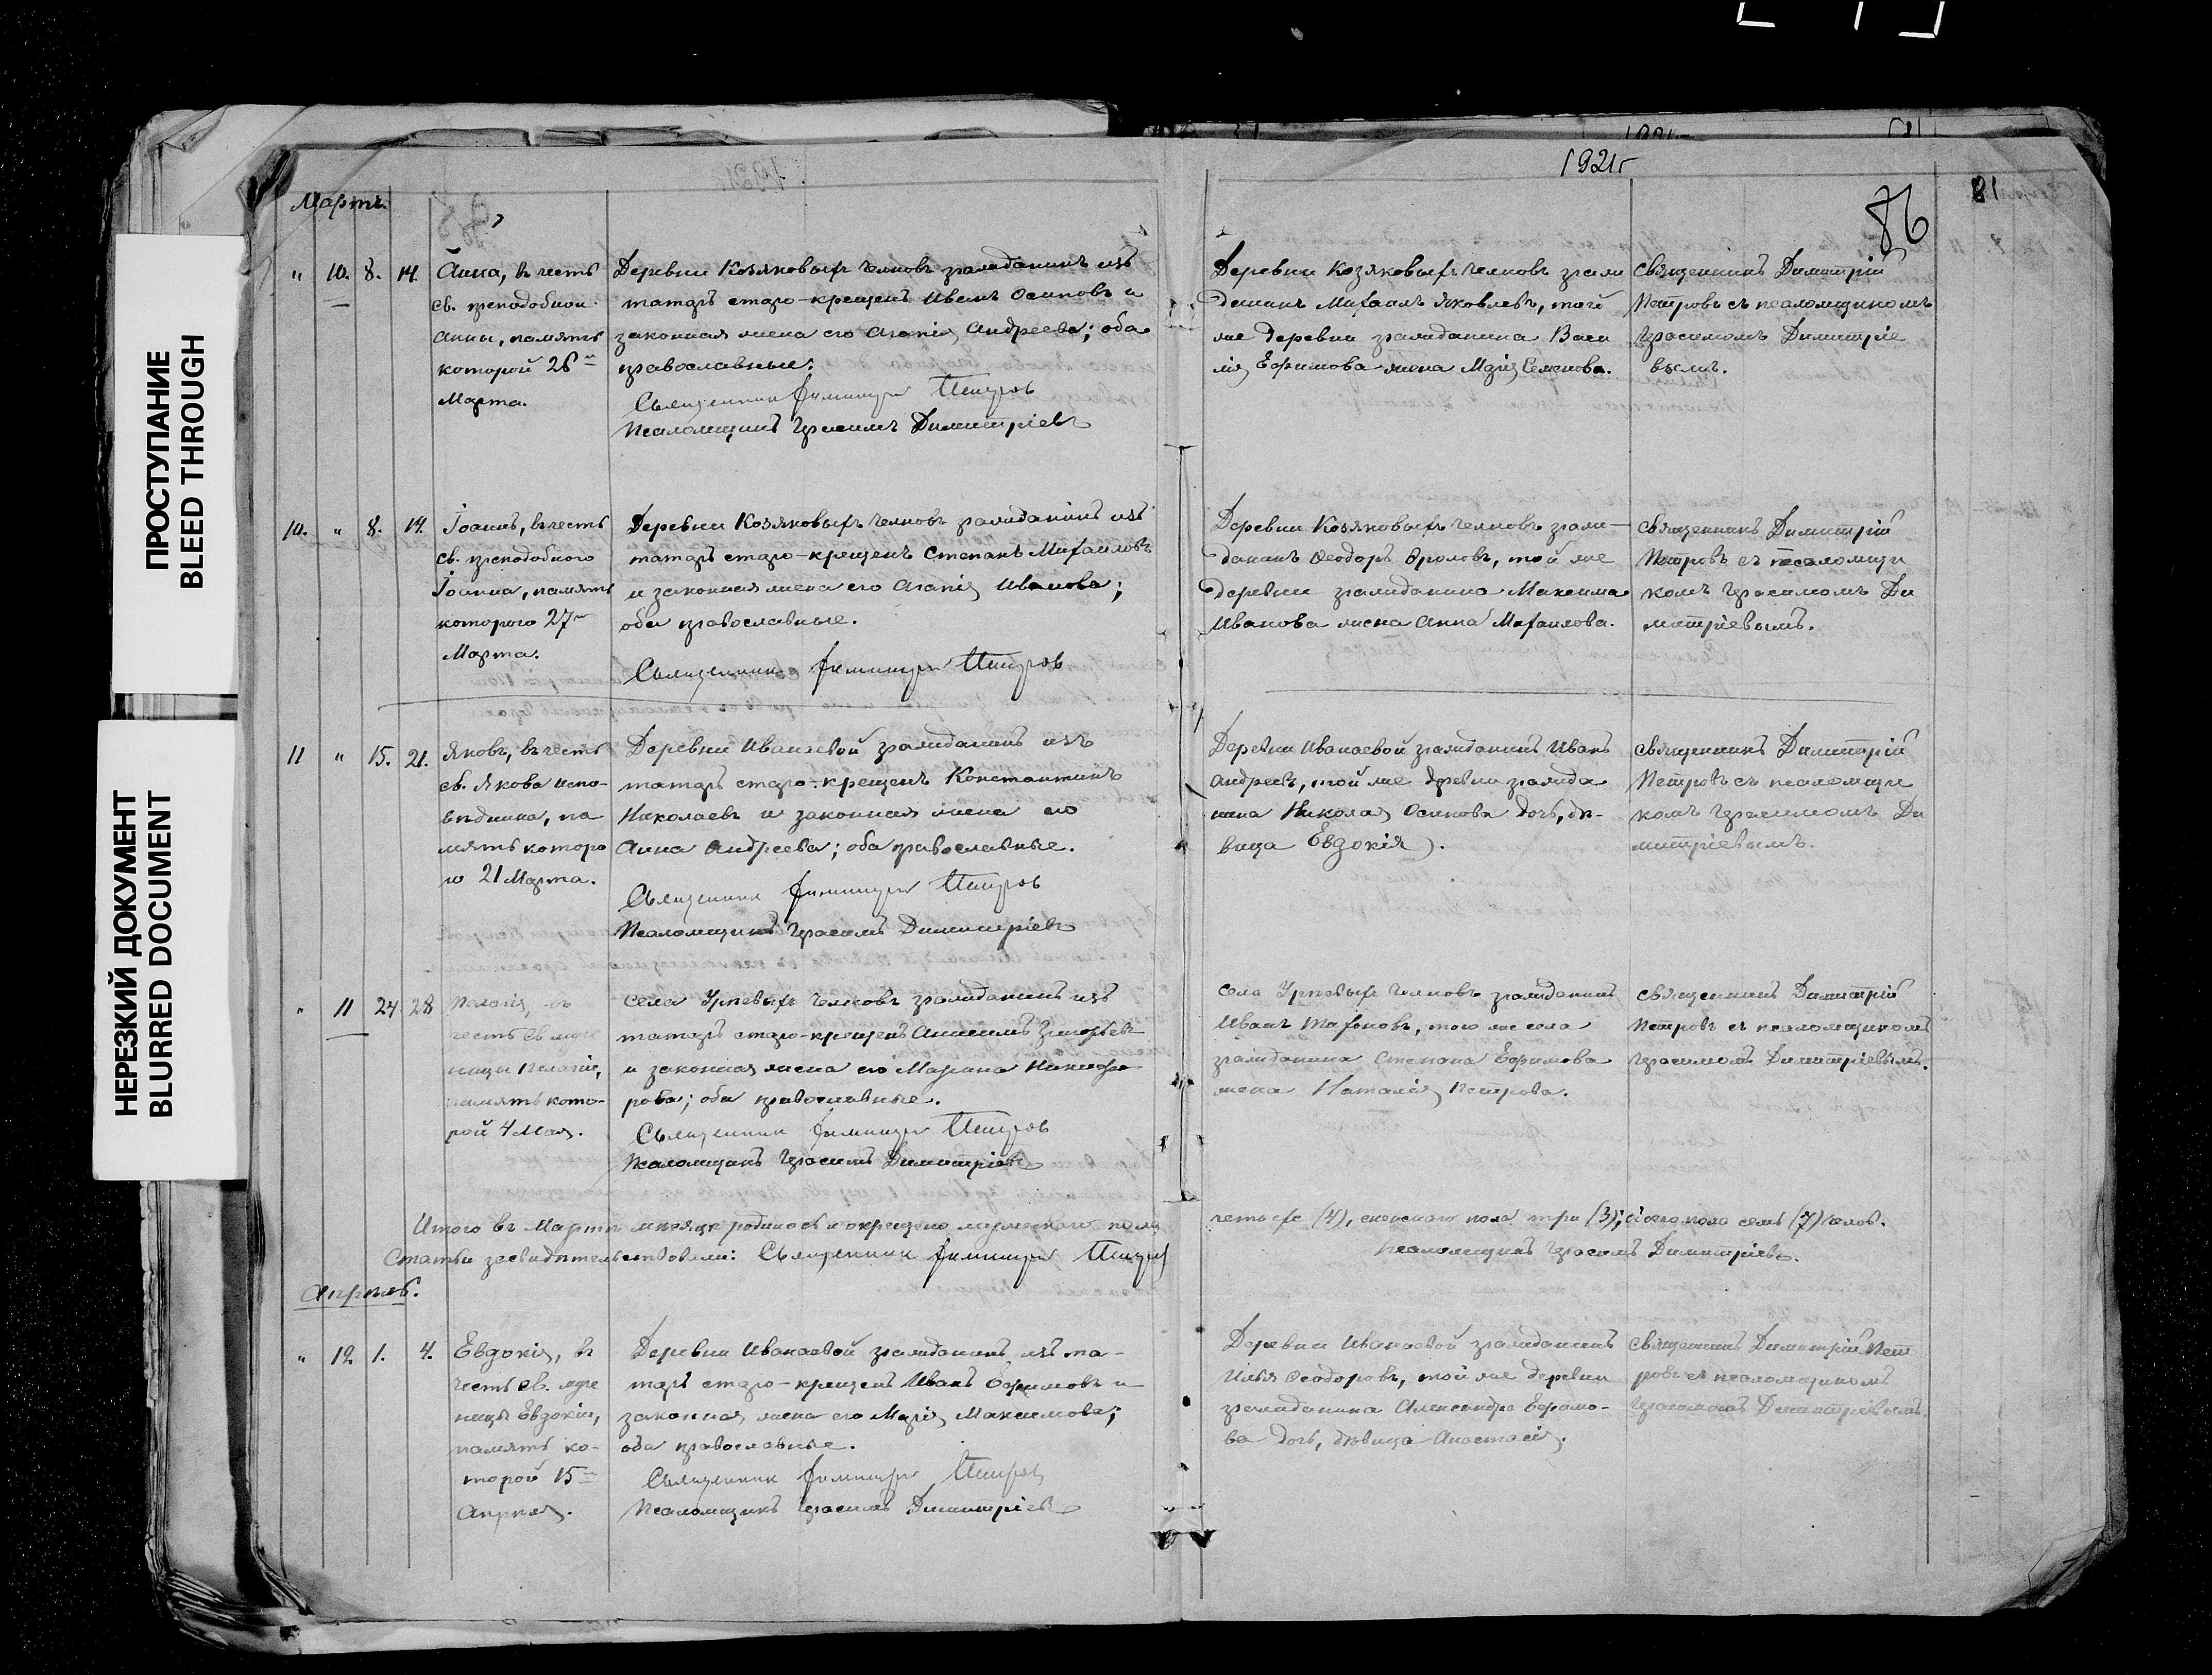 1921г
81
86
ПРОСТУПАНИЕ
BLEED THROUGH
НЕРЕЗКИЙ ДОКУМЕНТ
BLURRED DOCUMENT
Мартъ.
" 10. 8. 14.
Анна, въ честь
св. преподобной
Анны, память
которой 26
Марта.
Деревни Козяковыхъ Челновъ гражданинъ изъ
татаръ старо-крещенъ Иванъ Осиповъ и
законная жена его Агапія Андреева; оба
православные.
Священник Димитрий Петров
Псаломщикъ Герасимъ Димитріевъ
Деревни Козяковыхъ Челновъ граж
данинъ Михаилъ Яковлевъ, той
же деревни гражданина Васи
лія Ефимова жена Марія Семенова.
Священникъ Димитрій
Петровъ съ псаломщикомъ
Герасимомъ Димитріе
вымъ.
10. " 8. 14.
Іоаннъ, въ честь
св. преподобного
Іоанна, память
которого 27
Марта.
Деревни Козяковыхъ Челновъ гражданинъ изъ
татаръ старо-крещенъ Степанъ Михаиловъ
и законная жена его Агапія Иванова;
оба православные.
Священник Димитрий Петров
Деревни Козяковыхъ Челновъ граж-
данинъ Ѳеодоръ Фроловъ, той же
деревни гражданина Максима
Иванова жена Анна Михаилова.
Священникъ Димитрій
Петровъ съ псаломщи
комъ Герасимомъ Ди
митріевымъ.
11 " 15. 21.
Яковъ, въ честь
св. Якова испо-
вѣдника, па
мять которо
го 21 Марта.
Деревни Иванаевой гражданинъ изъ
татаръ старо-крещенъ Константинъ
Николаевъ и законная жена его
Анна Андреева; оба православные.
Священник Димитрий Петров
Псаломщикъ Герасимъ Димитріевъ
Деревни Иванаевой гражданинъ Иванъ
Андреевъ, той же деревни гражда
нина Николая Осипова дочь, дѣ-
вица Евдокія.
Священникъ Димитрій
Петровъ съ псаломщи
комъ Герасимомъ Ди
митріевымъ.
" 11 24 28
Пелагія, въ
честь св. муче
ницы Пелагіи,
память кото-
рой 4 Мая.
Села Урѣевыхъ Челновъ гражданинъ изъ
татаръ старо-крещенъ Анисимъ Григорьев
и законная жена его Марина Никифо
рова; оба православные.
Священник Димитрий Петров
Псаломщикъ Герасимъ Димитріевъ
Села Урѣевыхъ Челновъ гражданинъ
Иванъ того же села
гражданина Степана Ефимова
жена Наталія Петрова.
Священникъ Димитрій
Петровъ съ псаломщикомъ
Герасимомъ Димитріевымъ.
Итого въ Мартѣ мѣсяцѣ родилось и окрещено мужескаго пола
четыре (4), женскаго пола три (3); обоего пола семь (7) челов.
Статьи засвидѣтельствовали: Священник Димитрий Петров
Псаломщикъ Герасимъ Димитріевъ.
Апрѣль.
" 12. 1. 4.
Евдокія, въ
честь св. муче
ницы Евдокіи,
память ко-
торой 15
Апрѣля.
Деревни Иванаевой гражданинъ изъ та-
таръ старо-крещенъ Иванъ Ефимовъ и
законная жена его Марія Максимова;
оба православные.
Священник Димитрий Петров
Псаломщикъ Герасимъ Димитріевъ
Деревни Иванаевой гражданинъ
Илья Ѳеодоровъ, той же деревни
гражданина Александра Ефимо-
ва дочь, дѣвица Анастасія.
Священникъ Димитрій Пет
ровъ съ псаломщикомъ
Герасимомъ Димитріевымъ.